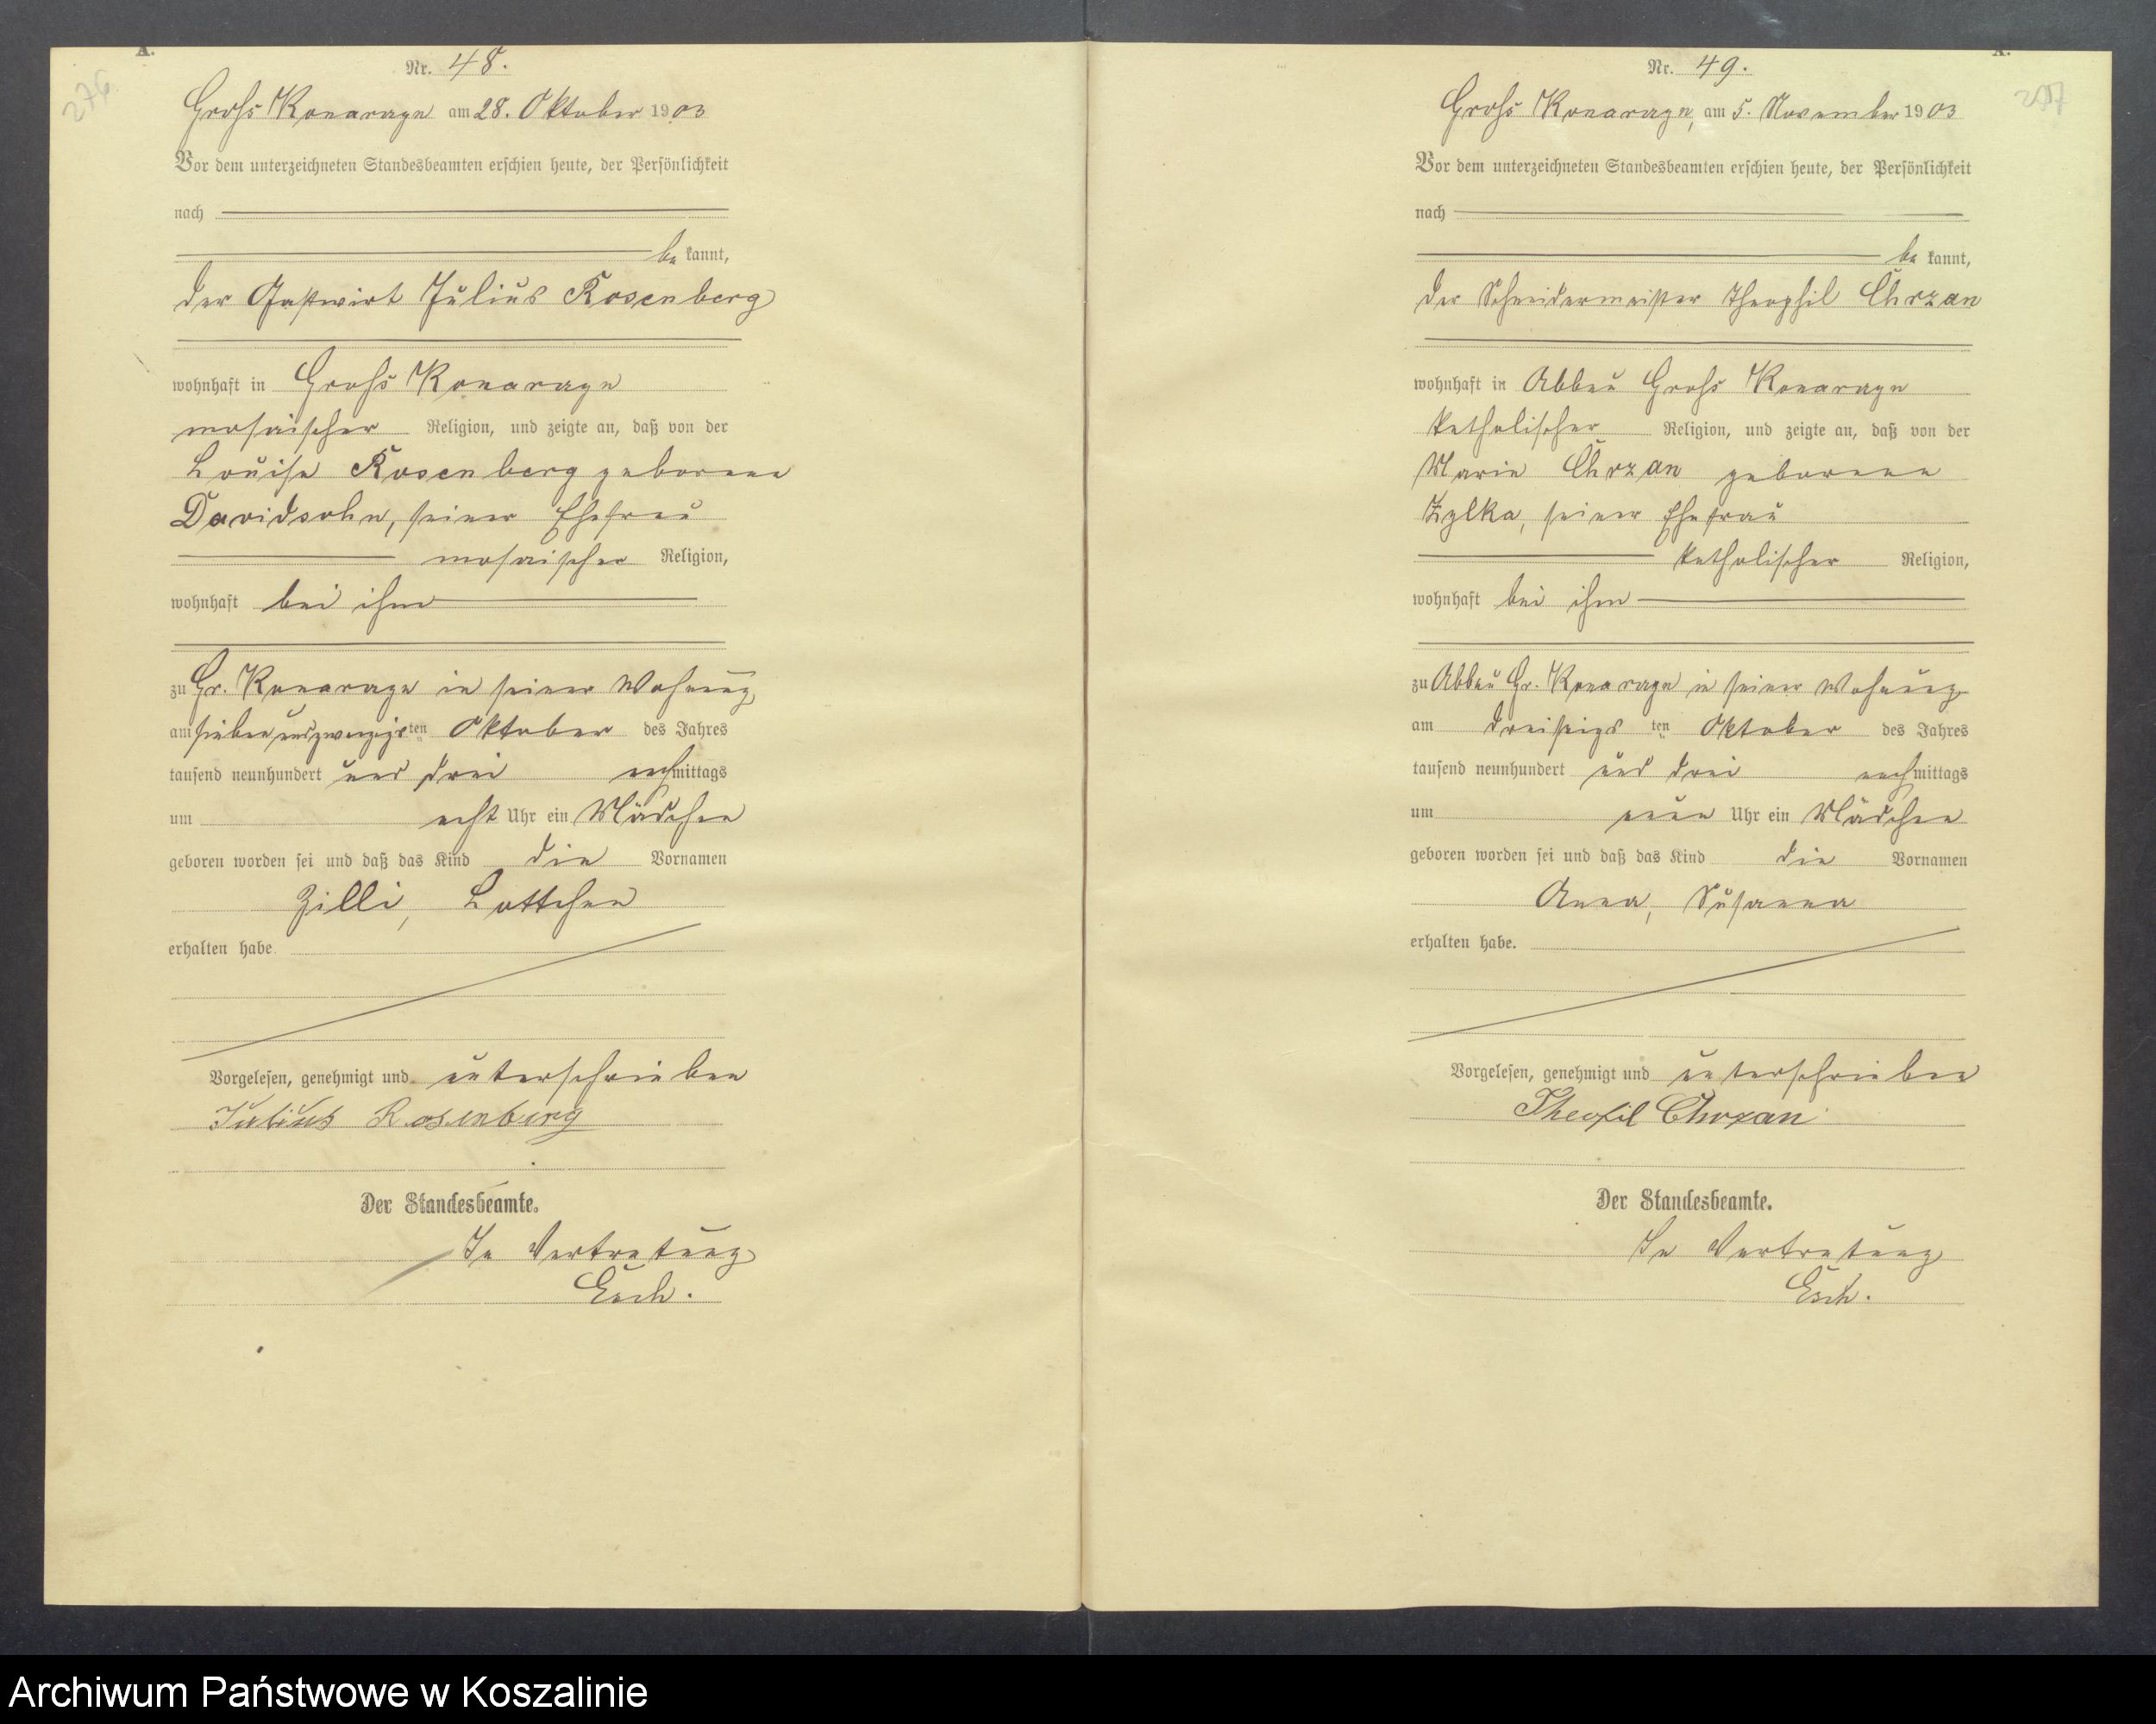 A.
276
Nr. 48.
Groß Konarzyn am 28. Oktober 1903
Vor dem unterzeichneten Standesbeamten erschien heute, der Persönlichkeit
nach
be kannt,
der Gastwirt Julius Rosenberg
wohnhaft in Groß Konarzyn
mosaischer Religion, und zeigte an, daß von der
Louise Rosenberg geborene
Davidsohn, seiner Ehefrau
mosaischer Religion,
wohnhaft bei ihm
zu Gr. Konarzyn in seiner Wohnung
am siebenundzwanzigsten Oktober des Jahres
tausend neunhundert und drei nachmittags
um acht Uhr ein Mädchen
geboren worden sei und daß das Kind die Vornamen
Zilli, Lottchen
erhalten habe.
Vorgelesen, genehmigt und unterschrieben
Julius Rosenberg
Der Standesbeamte.
In Vertretung
Esch.
A.
Nr. 49.
Groß Konarzyn, am 5. November 1903
Vor dem unterzeichneten Standesbeamten erschien heute, der Persönlichkeit
nach
be kannt,
der Schneidermeister Theophil Chrzan
wohnhaft in Abbau Groß Konarzyn
katholischer Religion, und zeigte an, daß von der
Marie Chrzan geborene
Zylka, seiner Ehefrau
katholischer Religion,
wohnhaft bei ihm
zu Abbau Gr. Konarzyn in seiner Wohnung
am dreißigsten Oktober des Jahres
tausend neunhundert und drei nachmittags
um neun Uhr ein Mädchen
geboren worden sei und daß das Kind die Vornamen
Anna, Susanna
erhalten habe.
Vorgelesen, genehmigt und unterschrieben
Theofil Chrzan
Der Standesbeamte.
In Vertretung
Esch.
Archiwum Państwowe w Koszalinie